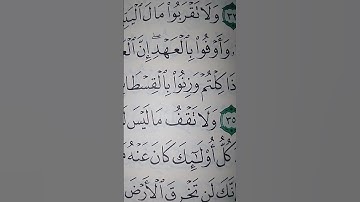 ٣٣ وَلَا تَقْرَبُوا۟ مَالَ ٱلْيَـ
وَأَوْفُوا۟ بِٱلْعَهْدِ ۖ إِنَّ ٱلْعَـ
ذَا كِلْتُمْ وَزِنُوا۟ بِٱلْقِسْطَا
٣٥ وَلَا تَقْفُ مَا لَيْسَ
كُلُّ أُو۟لَٰٓئِكَ كَانَ عَنْهُ
نَّكَ لَن تَخْرِقَ ٱلْأَرْضَ